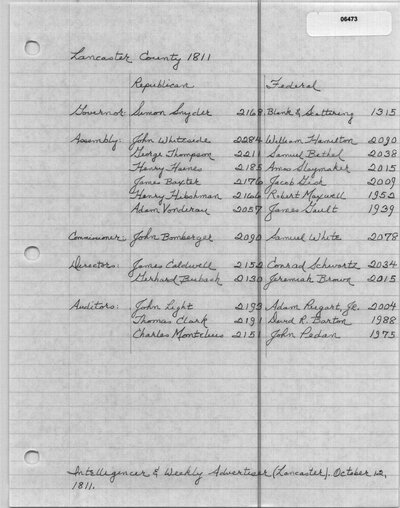 06473
Lancaster County 1811
Republican Federal
Governor: Simon Snyder 2168 Blank & Scattering 1315
Assembly: John Whiteside 2284 William Hamilton 2090
George Thompson 2211 Samuel Bethel 2038
Henry Haines 2185 Amos Slaymaker 2015
James Baxter 2176 Jacob Grosh 2009
Henry Hibshman 2166 Robert Maxwell 1952
Adam Vonderau 2057 James Gault 1939
Commissioner: John Bomberger 2090 Samuel White 2078
Directors: James Caldwell 2152 Conrad Schwartz 2034
Gerhard Bubach 2130 Jeremiah Brown 2015
Auditors: John Light 2193 Adam Reigart, Jr. 2004
Thomas Clark 2191 David R. Barton 1988
Charles Montelius 2151 John Pedan 1975
Intelligencer & Weekly Advertiser (Lancaster). October 12,
1811.